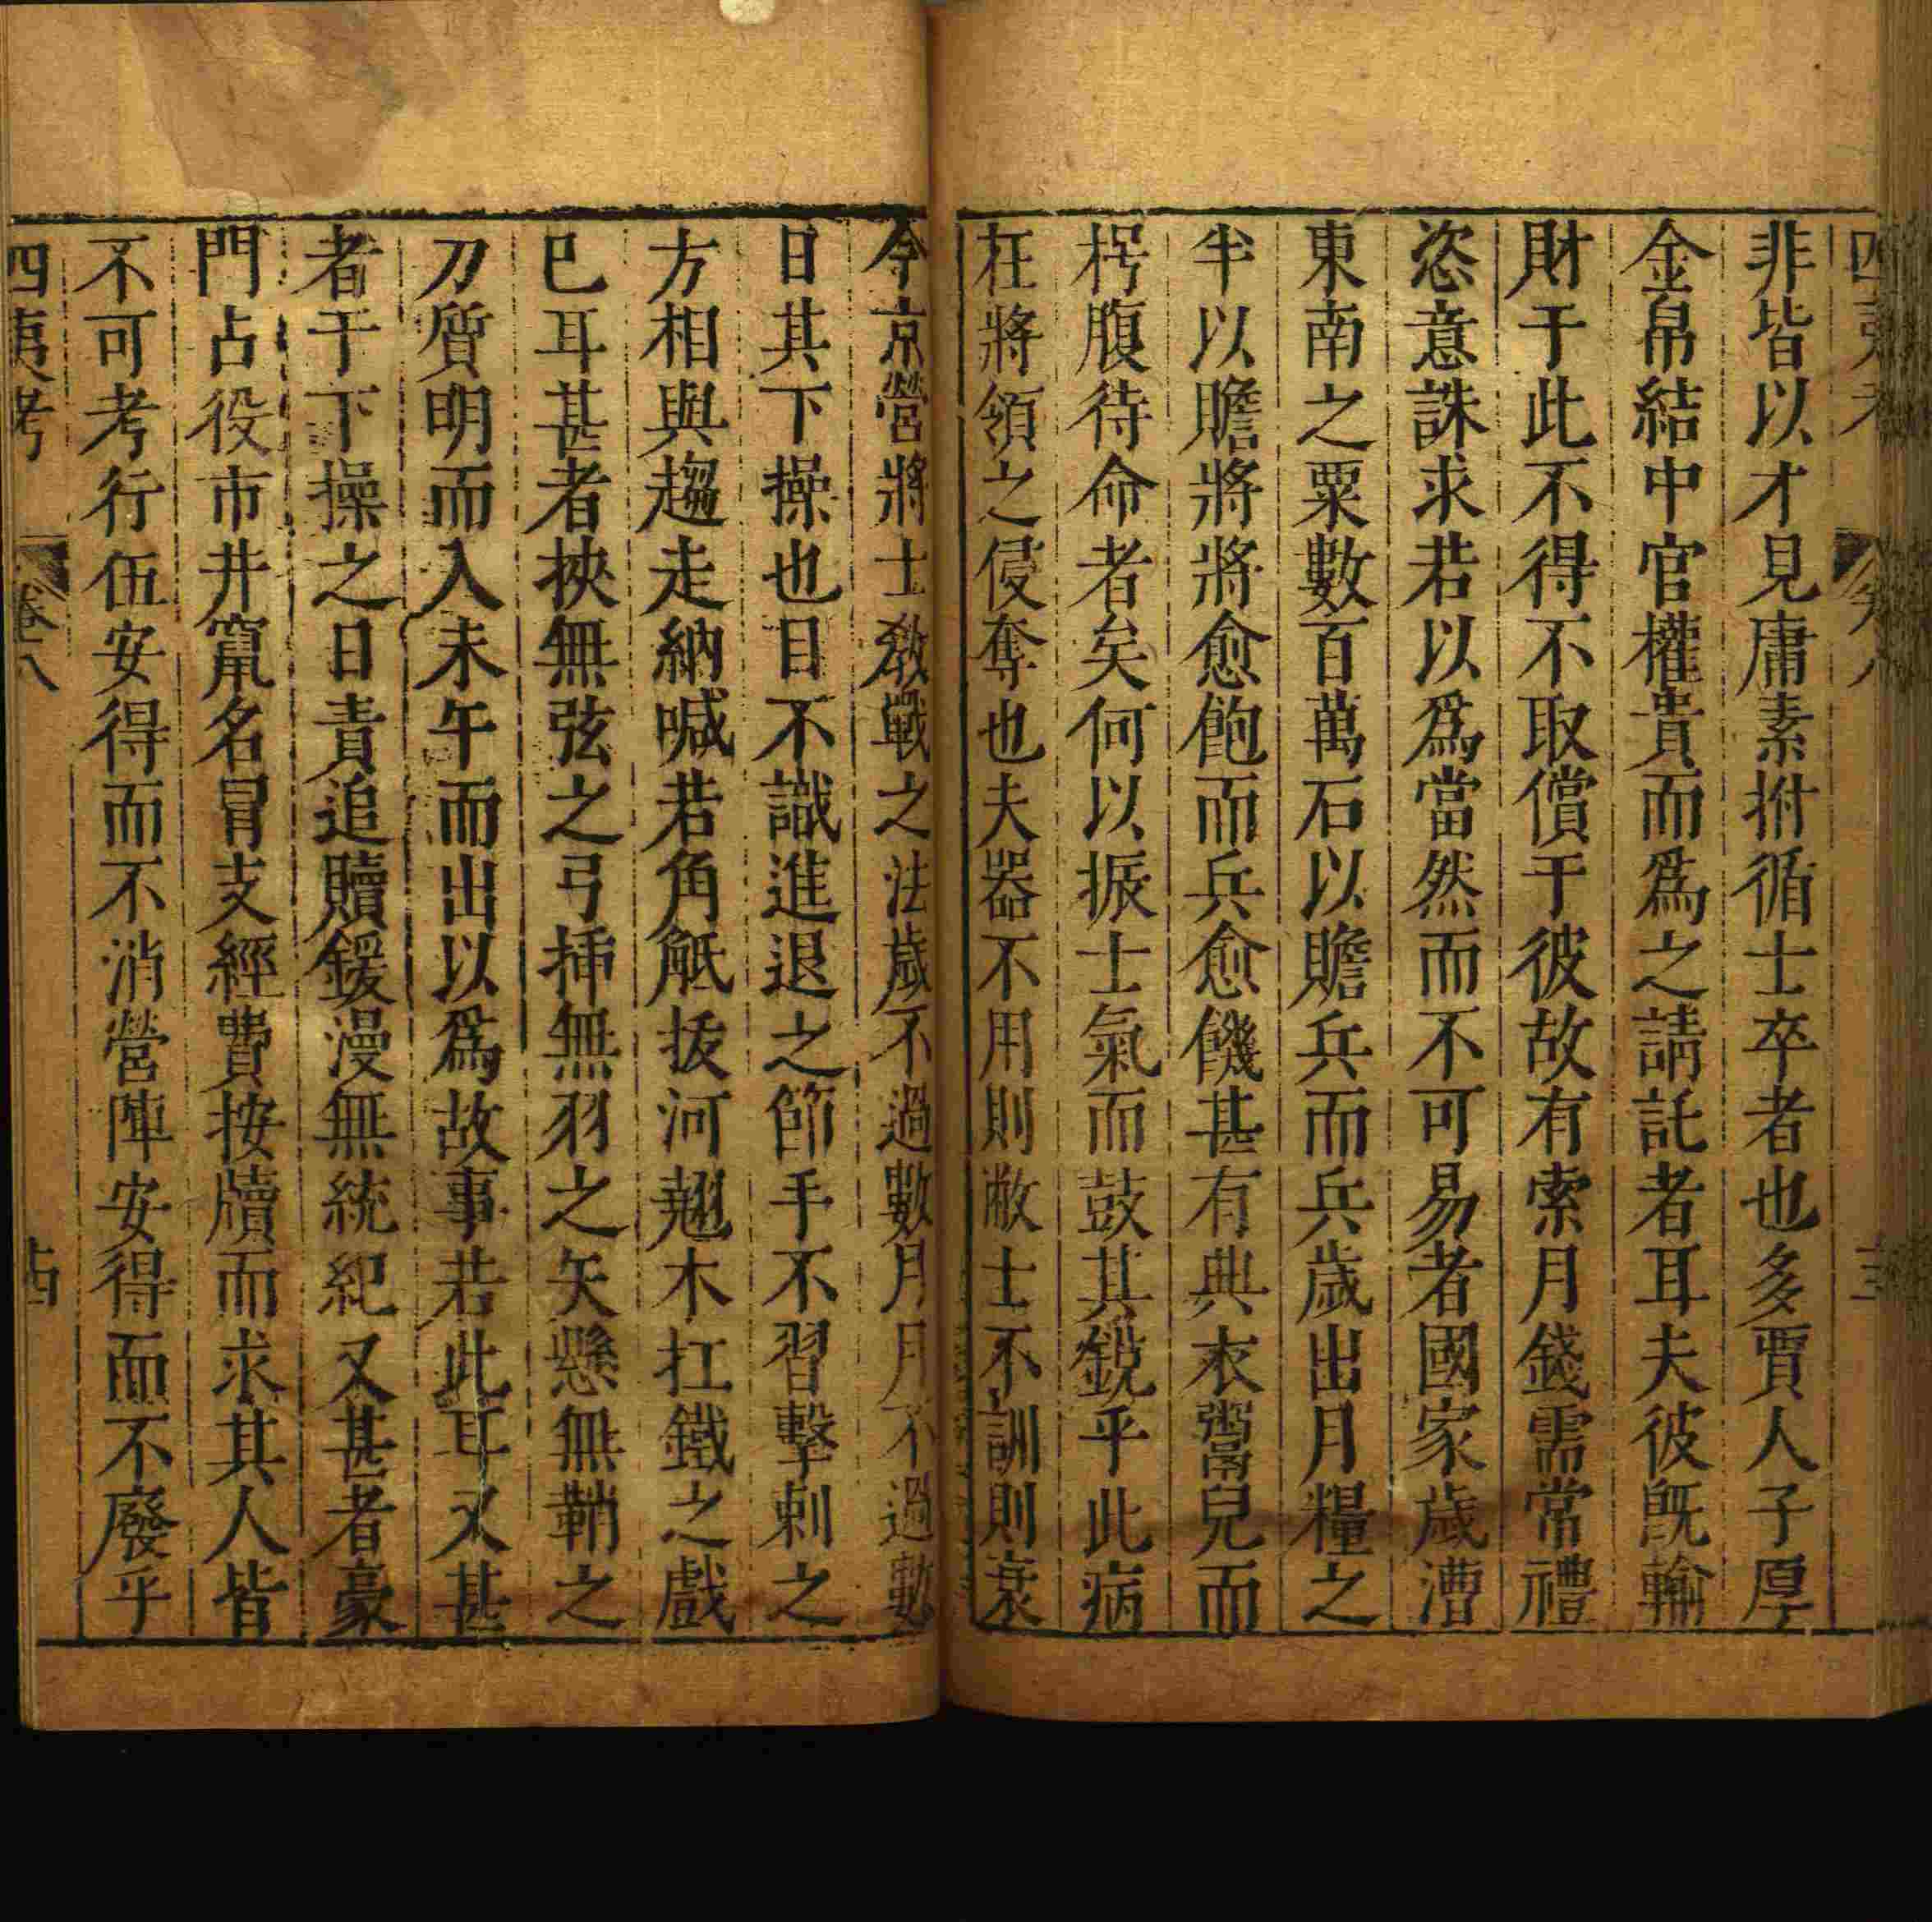 四夷考 卷八 十三
非皆以才見庸素拊循士卒者也多賈人子厚
金帛結中官權貴而爲之請託者耳夫彼旣輸
財于此不得不取償于彼故有索月錢需常禮
恣意誅求若以爲當然而不可易者國家歲漕
東南之粟數百萬石以贍兵而兵歲出月糧之
半以贍將將愈飽而兵愈饑甚有典衣鬻兒而
枵腹待命者矣何以振士氣而鼓其銳乎此病
在將領之侵奪也夫器不用則敝士不訓則衰
今京營將士敎戰之法歲不過數月月不過數
日其下操也目不識進退之節手不習擊刺之
方相與趨走納喊若角觝拔河翹木扛鐵之戲
已耳甚者挾無弦之弓揷無羽之矢懸無鞘之
刀質明而入未午而出以爲故事若此耳又甚
者于下操之日責追贖鍰漫無統紀又甚者豪
門占役市井竄名冒支經費按牘而求其人皆
不可考行伍安得而不消營陣安得而不廢乎
四夷考 卷八 十四